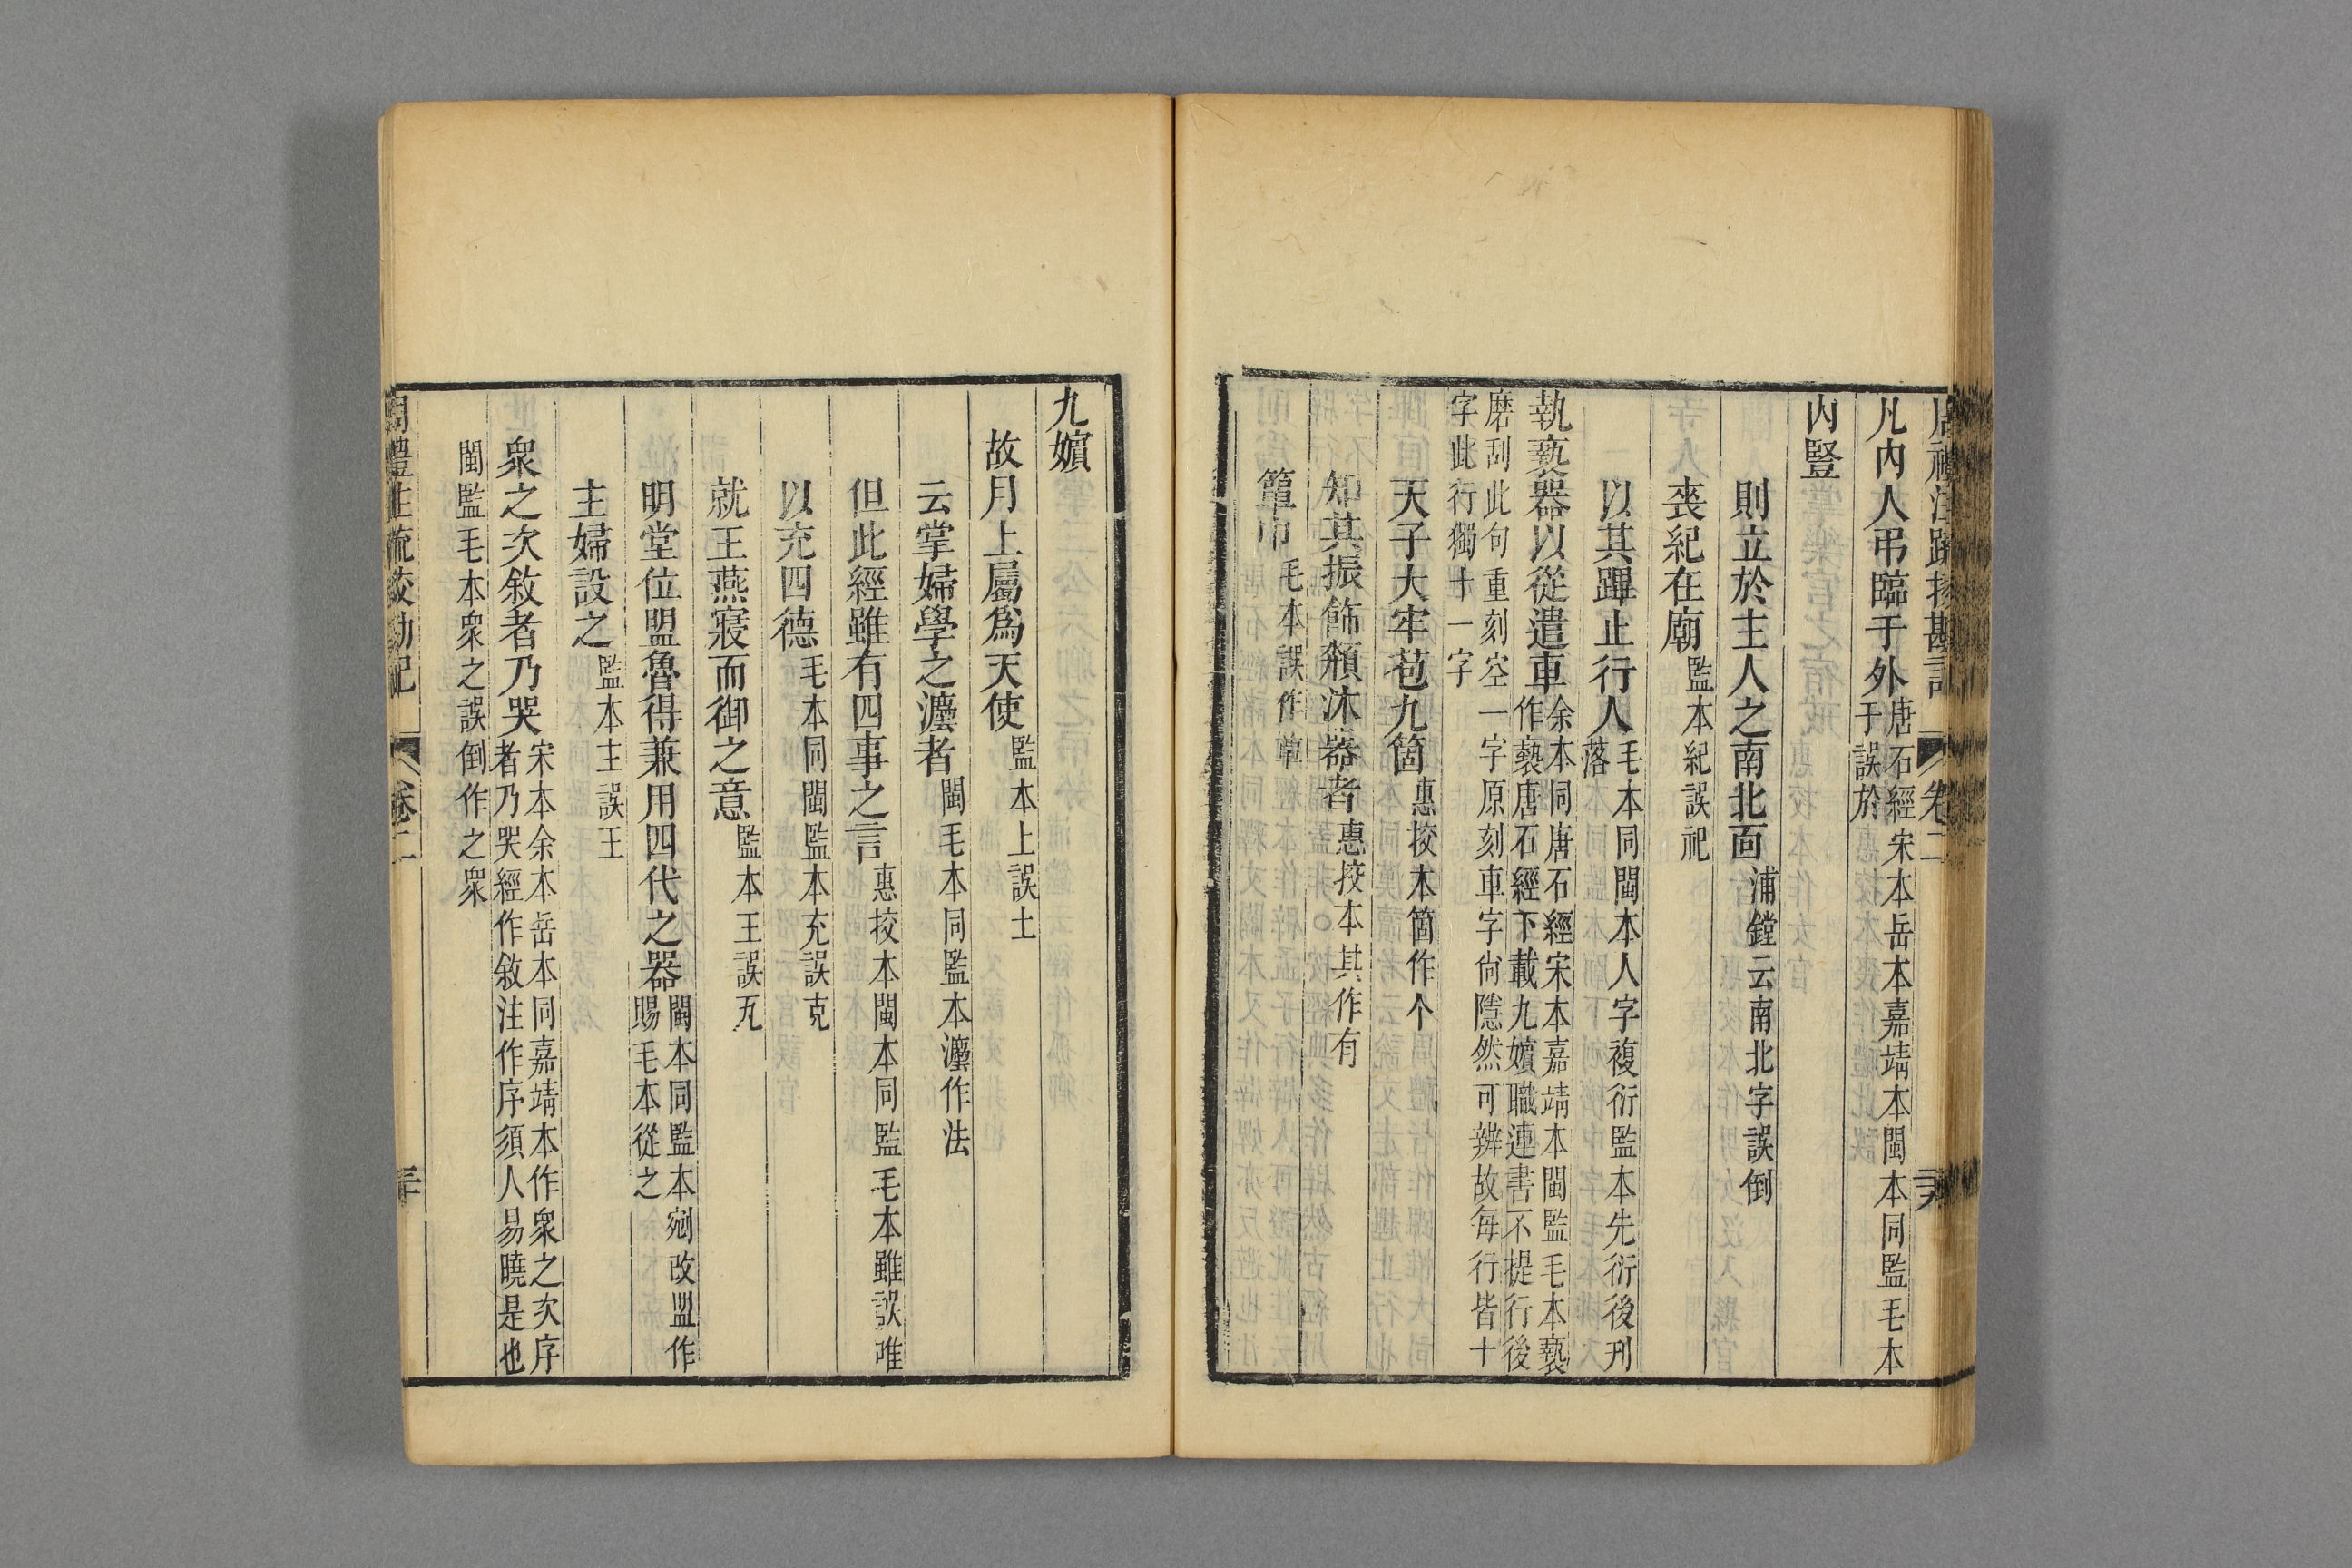 周禮注疏挍勘記 卷二
凡內人弔臨于外 唐石經宋本岳本嘉靖本閩本同監毛本于誤於
內豎
則立於主人之南北面 浦鏜云南北字誤倒
喪紀在廟 監本紀誤祀
以其蹕止行人 毛本同閩本人字複衍監本先衍後刋落
執褻器以從遣車 余本同唐石經宋本嘉靖本閩監毛本褻作䙝唐石經下載九嬪職連書不提行後
磨刮此句重刻空一字原刻車字尙隱然可辨故每行皆十字此行獨十一字
天子大牢苞九箇 惠挍本箇作个
知其振飾頮沐器者 惠挍本其作有
簞巾 毛本誤作
九嬪
故月上屬爲天使 監本上誤土
云掌婦學之灋者 閩毛本同監本灋作法
但此經雖有四事之言 惠挍本閩本同監毛本雖誤唯
以充四德 毛本同閩監本充誤克
就王燕寢而御之意 監本王誤㐄
明堂位盟魯得兼用四代之器 閩本同監本剜改盟作賜毛本從之
主婦設之 監本主誤王
衆之次敘者乃哭 宋本余本岳本同嘉靖本作衆之次序者乃哭經作敘注作序須人易曉是也
閩監毛本衆之誤倒作之衆
周禮注疏挍勘記 卷二 三十